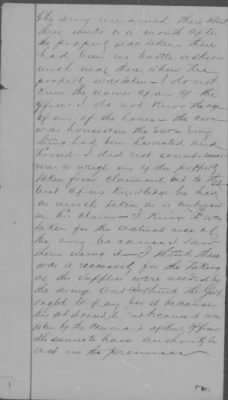 The army remained there about
three weeks or a month after
the property was taken. There
had been no battle or skir
mish near there when this
property was taken. I do not
know the names of any of the
officers. I do not know the age
of any of the horses. The corn
was housed in the barn Every
thing had been harvested and
housed. I did not count meas
ure or weigh any of the property
taken from Claimant but to the
best of my knowledge he had
as much taken as is
in his claim. I know it was
taken for the actual use of
the army because I saw
them using it. I think there
was a necessity for the taking
of the supplies were needed by
the army. And I think the Govt
ought to pay for it because
his and because it was
taken by the command of the officers
who seemed to have authority to
act in the premises